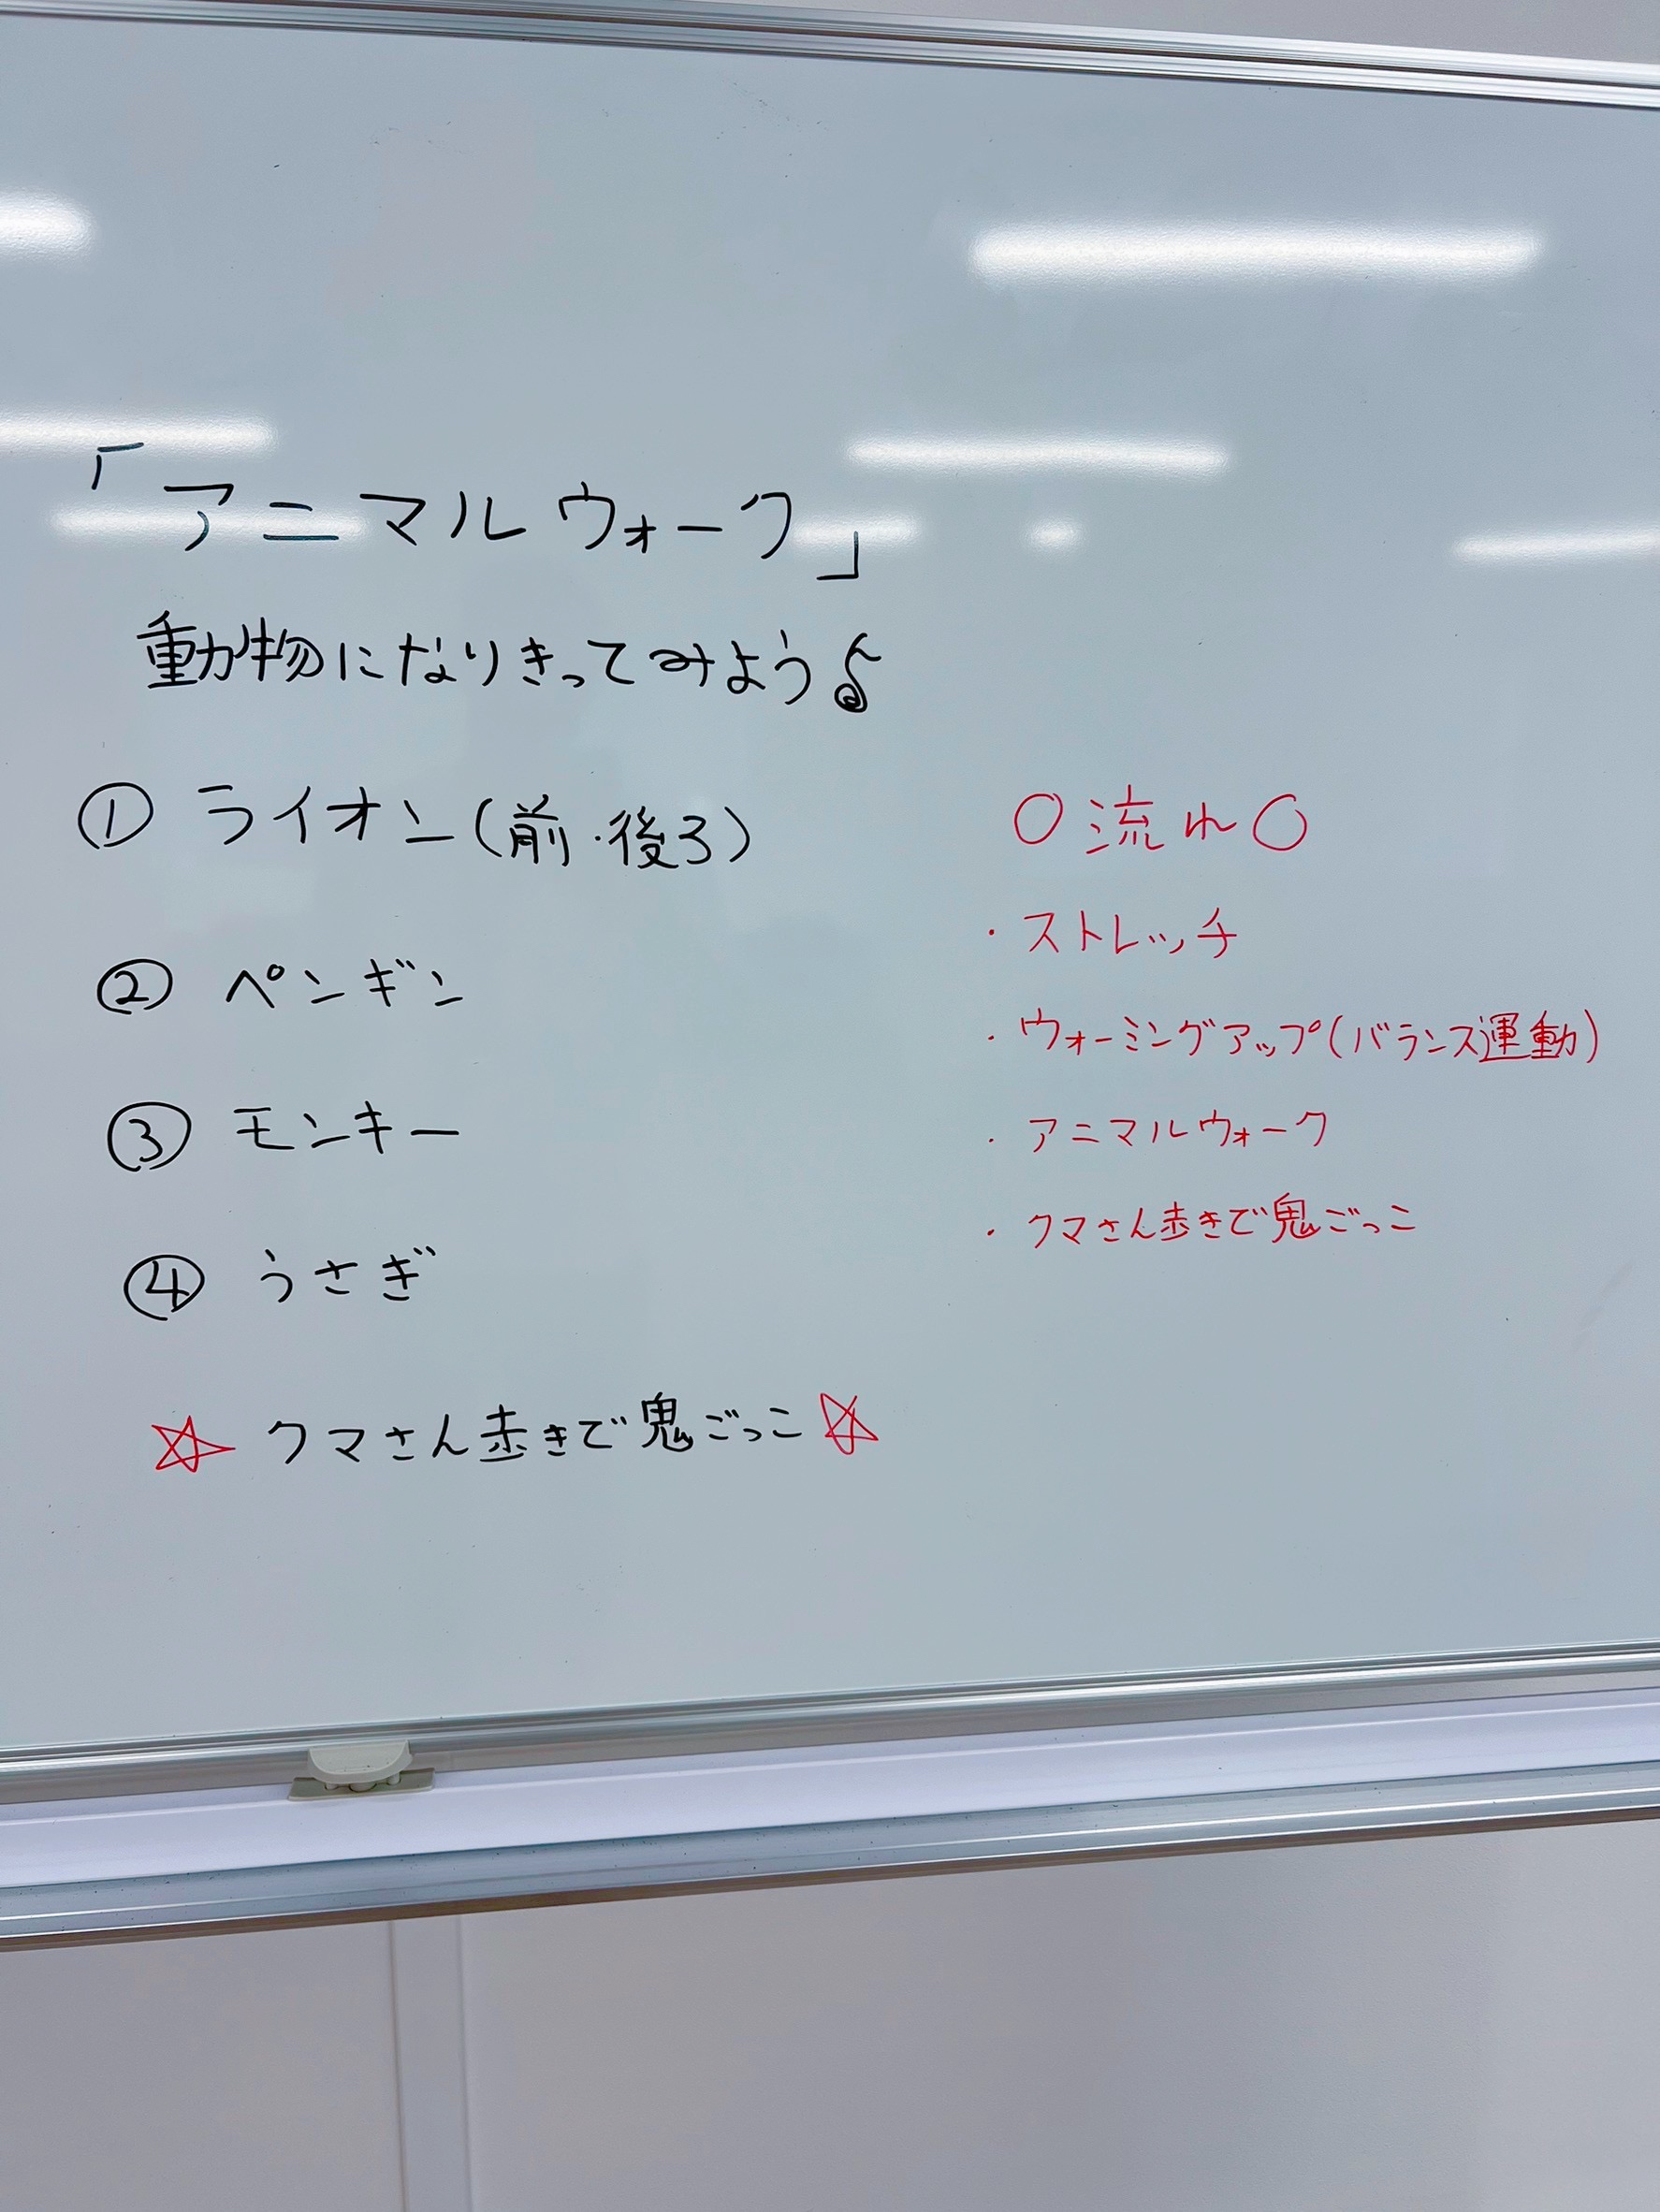 「アニマルウォーク」
動物になりきってみよう♪
① ライオン(前・後ろ)
② ペンギン
③ モンキー
④ うさぎ
☆ クマさん歩きで鬼ごっこ ☆
○流れ○
・ストレッチ
・ウォーミングアップ(バランス運動)
・アニマルウォーク
・クマさん歩きで鬼ごっこ